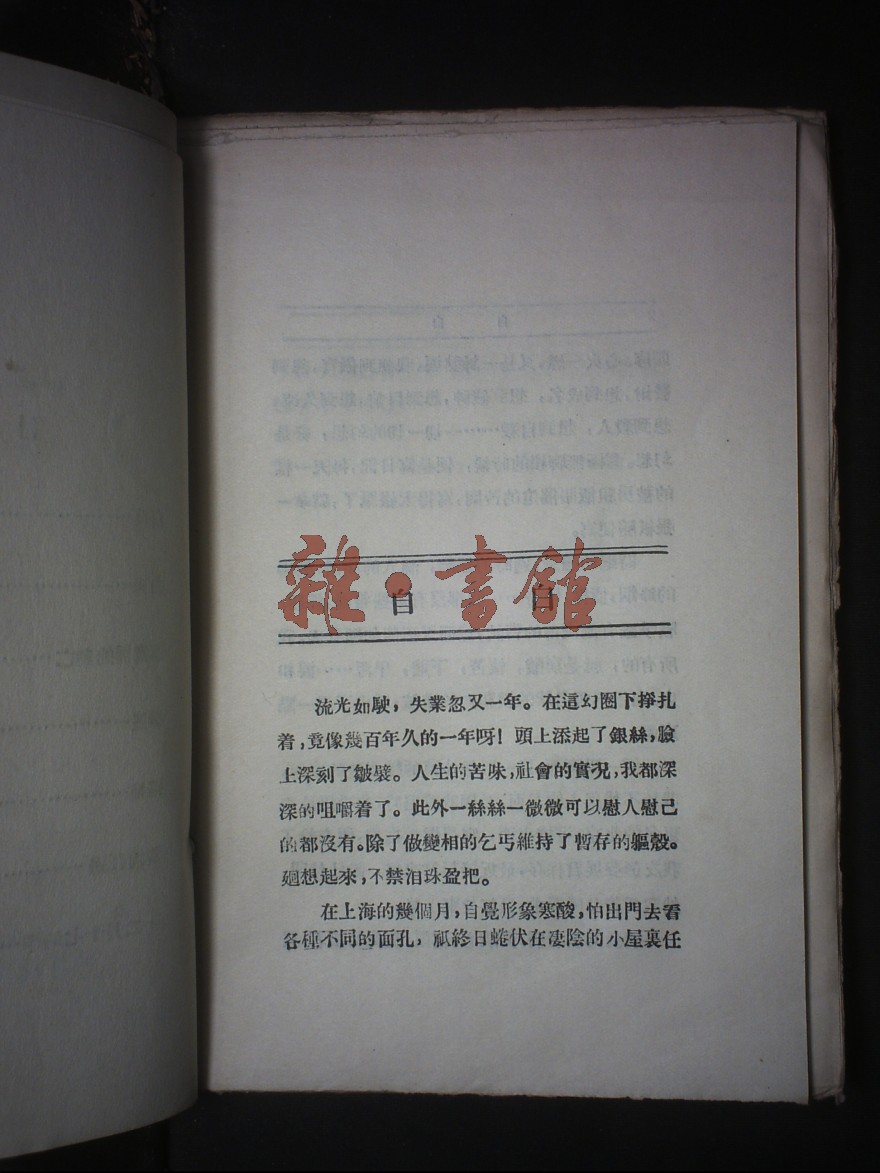 雜·書館
自 白
流光如駛，失業忽又一年。在這幻圈下掙扎
着，竟像幾百年久的一年呀！頭上添起了銀絲，臉
上深刻了皺襞。人生的苦味，社會的實況，我都深
深的咀嚼着了。此外一絲絲一微微可以慰人慰己
的都沒有。除了做變相的乞丐維持了暫存的軀殼。
廻想起來，不禁泪珠盈把。
在上海的幾個月，自覺形象寒酸，怕出門去看
各種不同的面孔，祇終日蜷伏在凄陰的小屋裏任